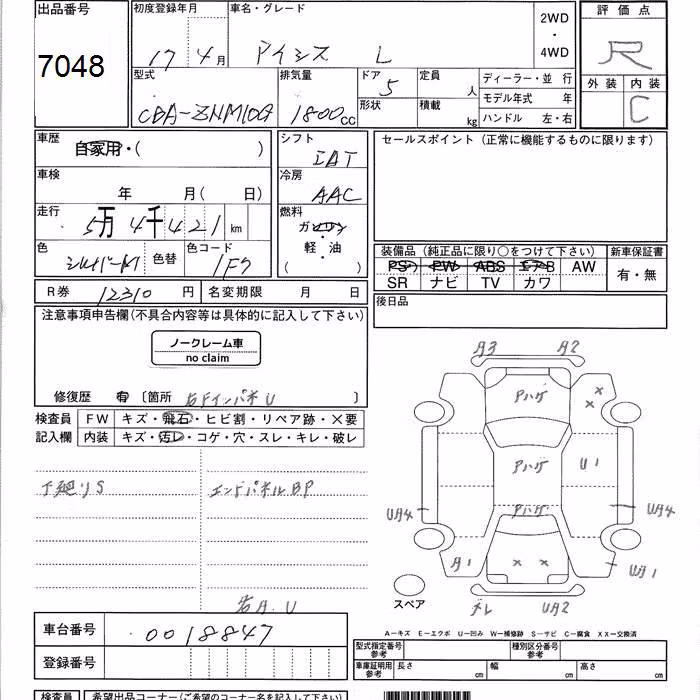 出品番号
7048
初度登録年月
17年4月
車名・グレード
アイシス L
2WD
・
4WD
評価点
R
外装 内装
C
型式
CBA-ZNM10G
排気量
1800cc
ドア
5
形状
定員
人
積載
kg
ディーラー・並行
モデル年式 年
ハンドル 左・右
車歴
自家用・( )
車検
年 月( 日)
走行
5万4千421km
色
シルバーM
色替
色コード
1F7
シフト
IAT
冷房
AAC
燃料
ガソリン
・
軽・油
( )
セールスポイント(正常に機能するものに限ります)
装備品(純正品に限り○をつけて下さい)
PS PW ABS エアB AW
SR ナビ TV カワ
新車保証書
有・無
R券 12310円
名変期限 月 日
後日品
注意事項申告欄(不具合内容等は具体的に記入して下さい)
ノークレーム車
no claim
修復歴 有 〔箇所 右Fインパネ U 〕
検査員
記入欄
FW キズ・飛石・ヒビ割・リペア跡・×要
内装 キズ・汚レ・コゲ・穴・スレ・キレ・破レ
下廻りS
エンドパネルBP
右A.U
A3 A2
Aハゲ
××
Aハゲ
U1
Aハゲ
UA4
UA4
A1
××
UA1
UA2
スペア
A-キズ E-エクボ U-凹み W-補修跡 S-サビ C-腐食 XX-交換済
車台番号
0018847
登録番号
型式指定番号
参考
種別区分番号
参考
車庫証明用
参考
長さ cm
幅 cm
高さ cm
検査員
希望出品コーナー(ご希望のコーナー名を記入して下さい)